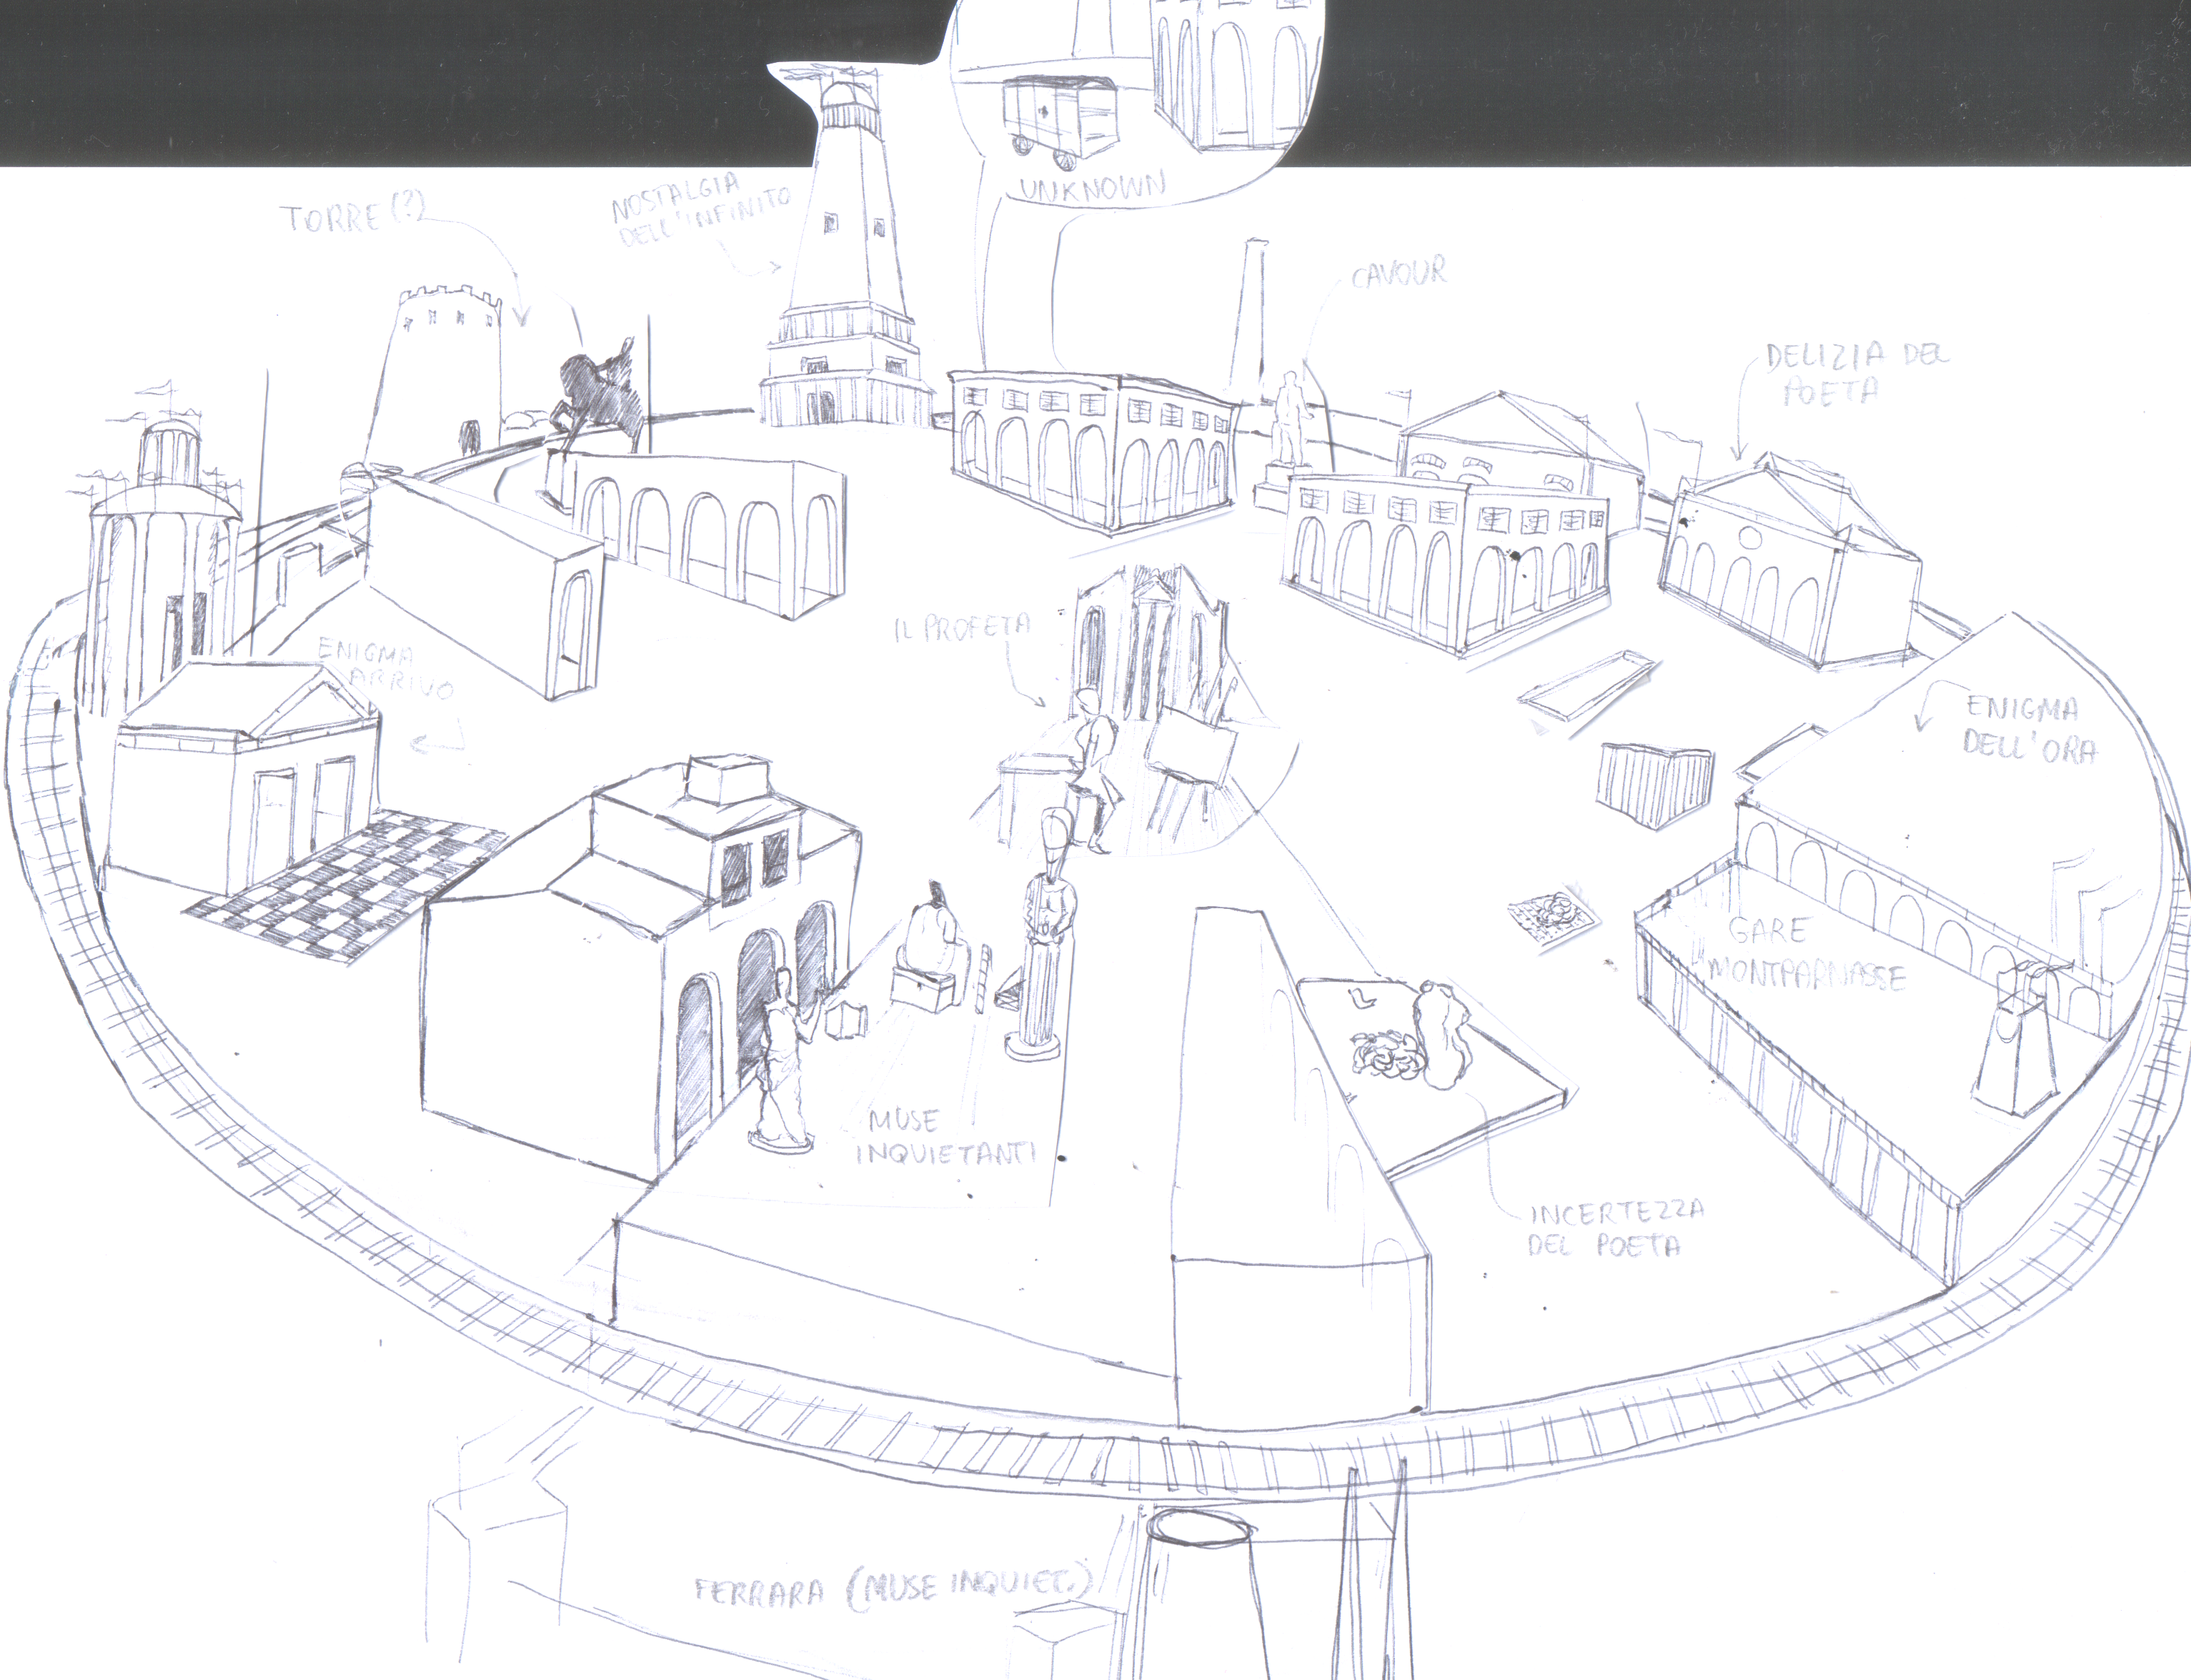 UNKNOWN
TORRE(?)
NOSTALGIA
DELL'INFINITO
CAVOUR
DELIZIA DEL
POETA
IL PROFETA
ENIGMA
ARRIVO
ENIGMA
DELL'ORA
GARE
MONTPARNASSE
MUSE
INQUIETANTI
INCERTEZZA
DEL POETA
FERRARA (MUSE INQUIET.)